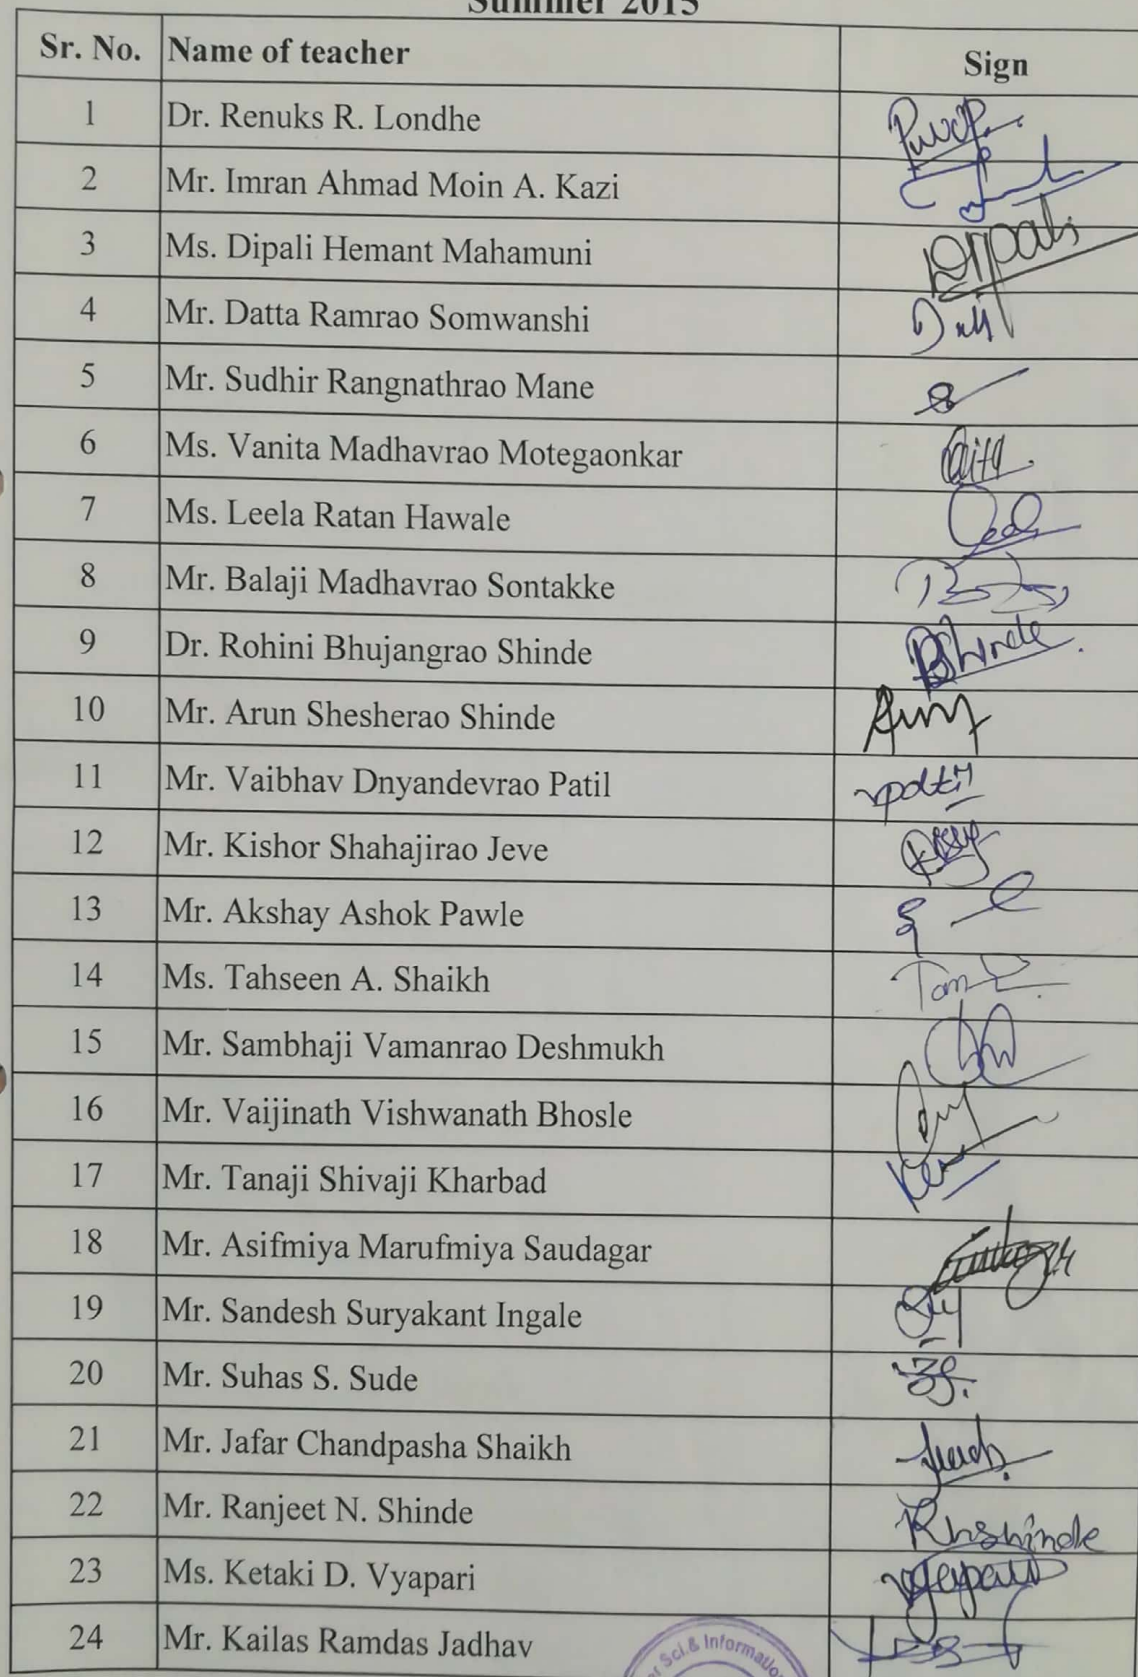 Summer 2015
Sr. No. Name of teacher Sign
1 Dr. Renuks R. Londhe
2 Mr. Imran Ahmad Moin A. Kazi
3 Ms. Dipali Hemant Mahamuni Dipali
4 Mr. Datta Ramrao Somwanshi
5 Mr. Sudhir Rangnathrao Mane
6 Ms. Vanita Madhavrao Motegaonkar
7 Ms. Leela Ratan Hawale
8 Mr. Balaji Madhavrao Sontakke
9 Dr. Rohini Bhujangrao Shinde RBShinde
10 Mr. Arun Shesherao Shinde
11 Mr. Vaibhav Dnyandevrao Patil vpatil
12 Mr. Kishor Shahajirao Jeve
13 Mr. Akshay Ashok Pawle
14 Ms. Tahseen A. Shaikh
15 Mr. Sambhaji Vamanrao Deshmukh
16 Mr. Vaijinath Vishwanath Bhosle
17 Mr. Tanaji Shivaji Kharbad
18 Mr. Asifmiya Marufmiya Saudagar
19 Mr. Sandesh Suryakant Ingale
20 Mr. Suhas S. Sude
21 Mr. Jafar Chandpasha Shaikh
22 Mr. Ranjeet N. Shinde Rnshinde
23 Ms. Ketaki D. Vyapari
24 Mr. Kailas Ramdas Jadhav
Sci.& Informatio